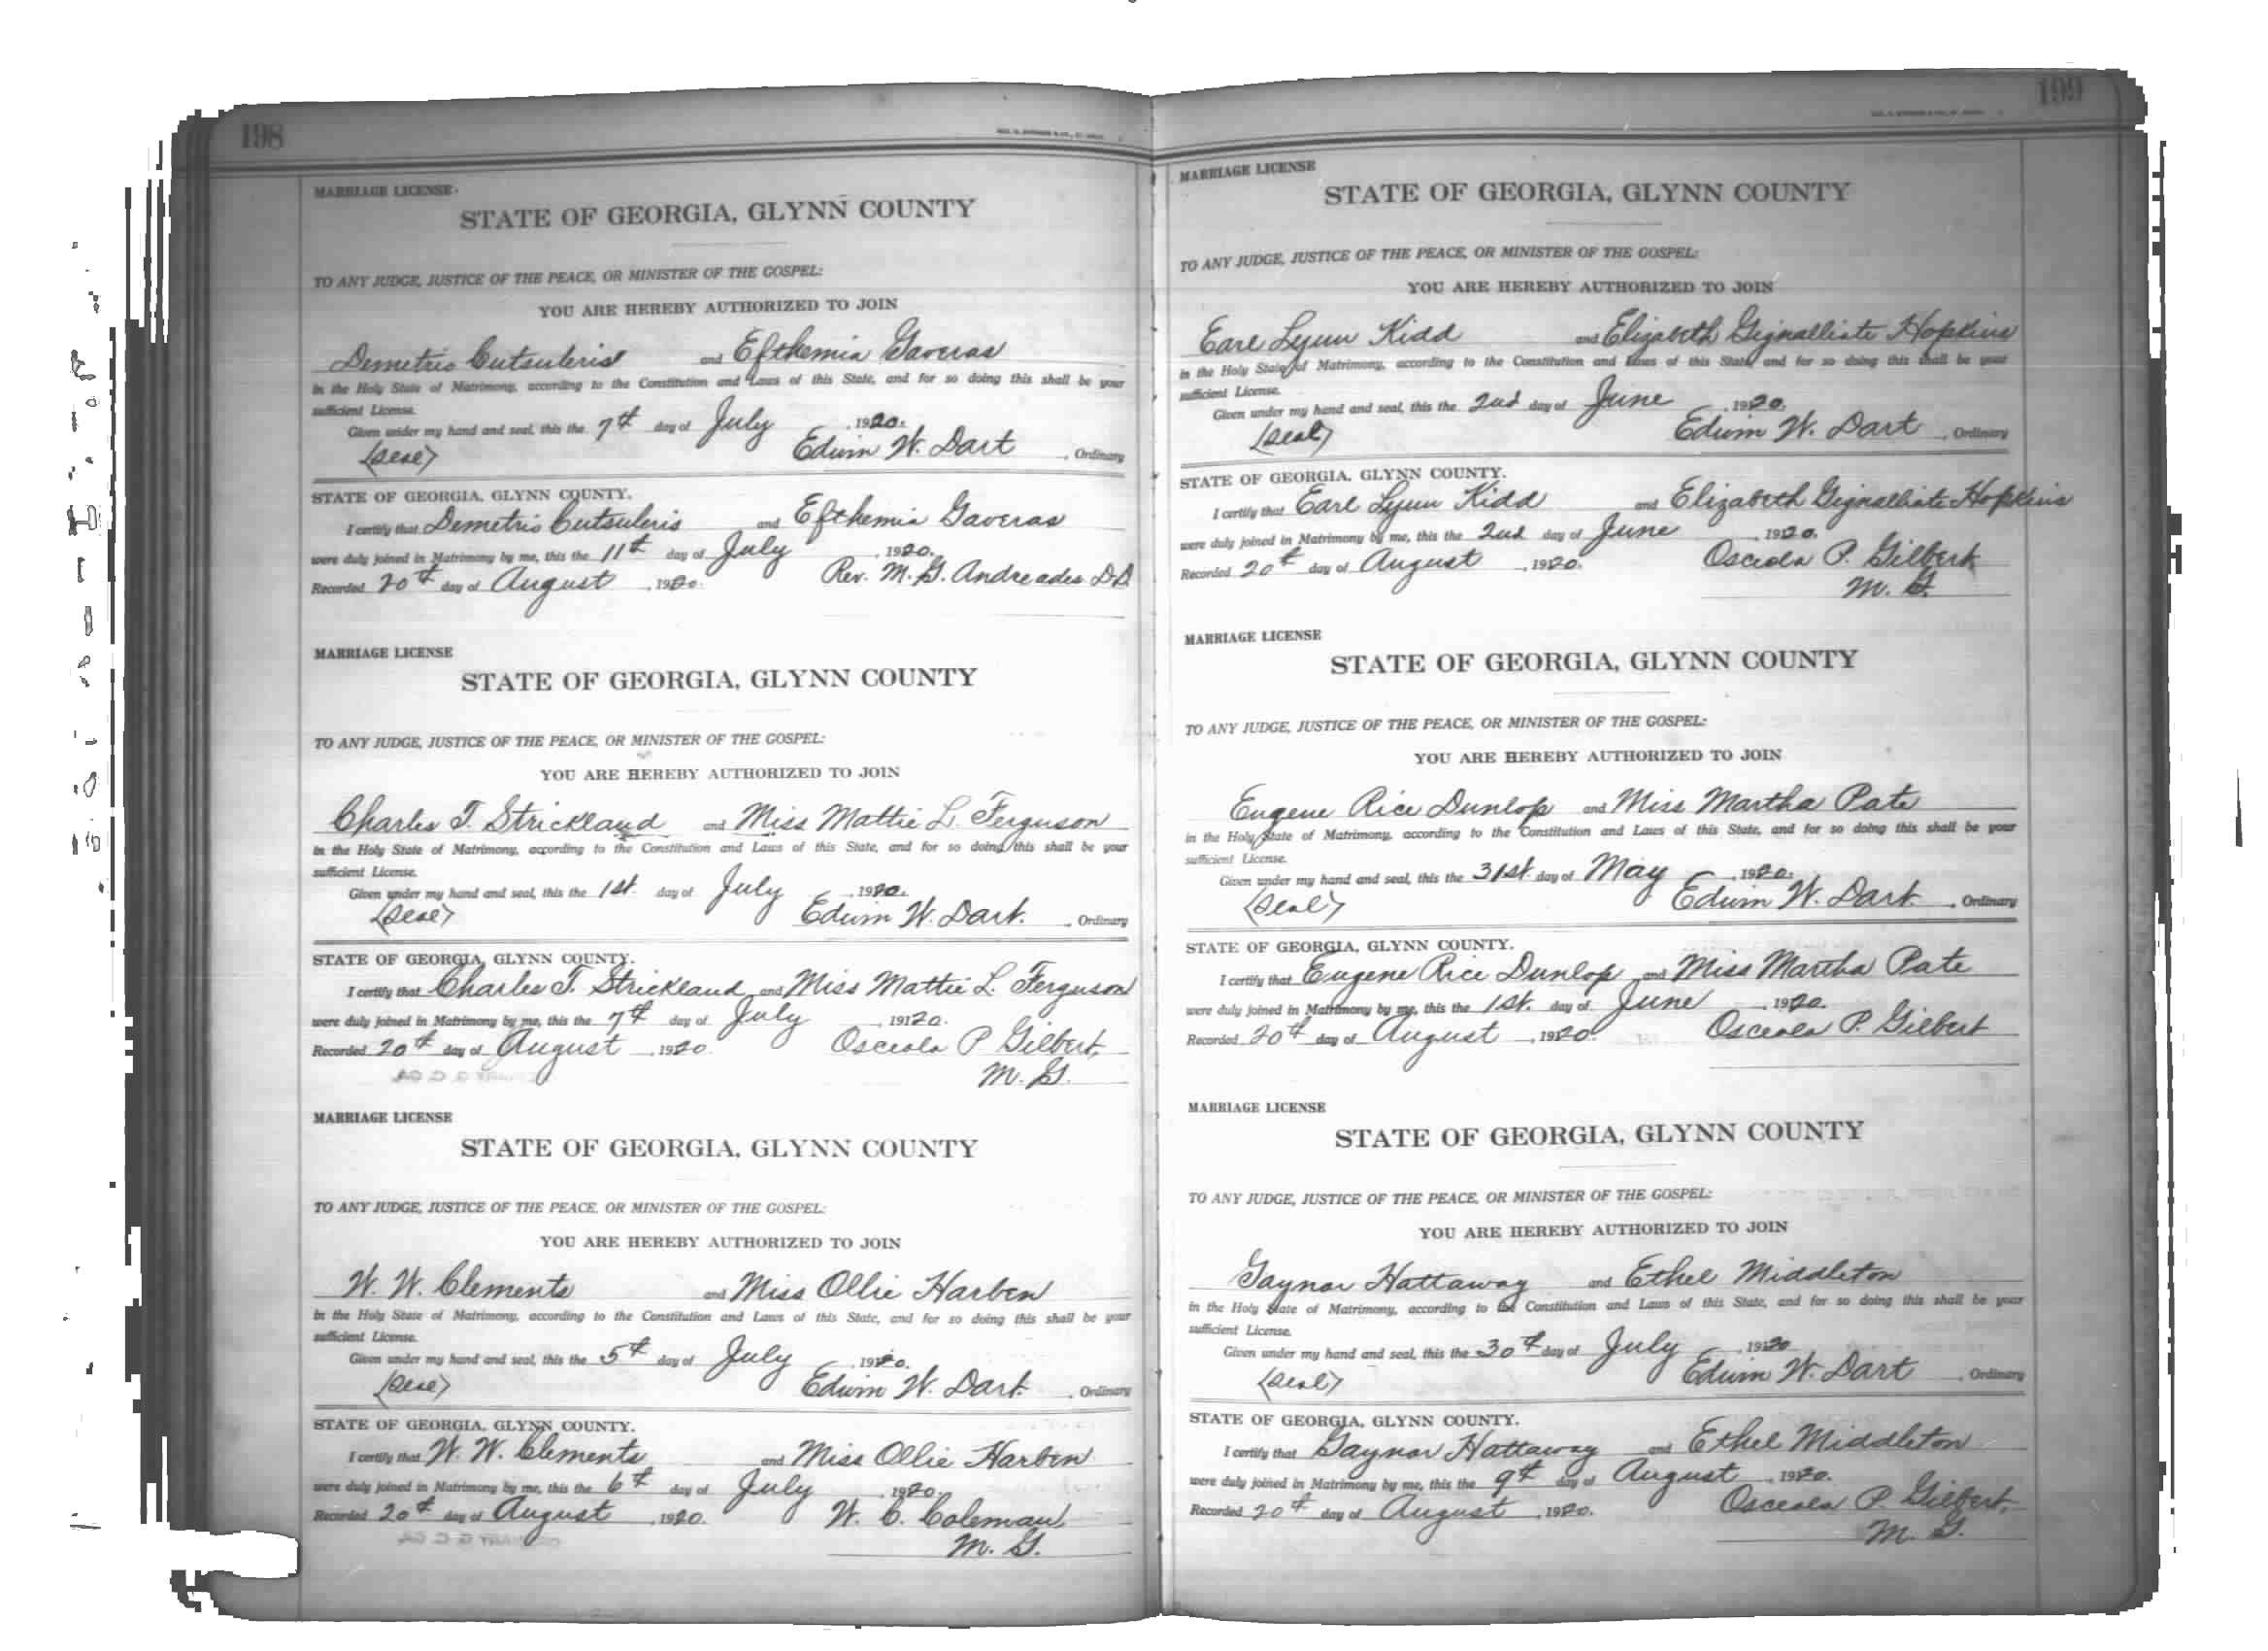 198
MARRIAGE LICENSE
STATE OF GEORGIA, GLYNN COUNTY
TO ANY JUDGE, JUSTICE OF THE PEACE, OR MINISTER OF THE GOSPEL:
YOU ARE HEREBY AUTHORIZED TO JOIN
Demetrio Cutsuleris and Efthemia Gaveras
in the Holy State of Matrimony, according to the Constitution and Laws of this State, and for so doing this shall be your
sufficient License.
Given under my hand and seal, this the 7th day of July, 1920.
(Seal) Edwin W. Dart, Ordinary
STATE OF GEORGIA, GLYNN COUNTY.
I certify that Demetrio Cutsuleris and Efthemia Gaveras
were duly joined in Matrimony by me, this the 11th day of July, 1920.
Recorded 20th day of August, 1920. Rev. M. G. Andreades D.D
MARRIAGE LICENSE
STATE OF GEORGIA, GLYNN COUNTY
TO ANY JUDGE, JUSTICE OF THE PEACE, OR MINISTER OF THE GOSPEL:
YOU ARE HEREBY AUTHORIZED TO JOIN
Charles T. Strickland and Miss Mattie L. Ferguson
in the Holy State of Matrimony, according to the Constitution and Laws of this State, and for so doing this shall be your
sufficient License.
Given under my hand and seal, this the 1st. day of July, 1920.
(Seal) Edwin W. Dart., Ordinary
STATE OF GEORGIA, GLYNN COUNTY.
I certify that Charles T. Strickland and Miss Mattie L. Ferguson
were duly joined in Matrimony by me, this the 7th day of July, 19120.
Recorded 20th day of August, 1920 Osceola P. Gilbert,
M. G.
MARRIAGE LICENSE
STATE OF GEORGIA, GLYNN COUNTY
TO ANY JUDGE, JUSTICE OF THE PEACE, OR MINISTER OF THE GOSPEL:
YOU ARE HEREBY AUTHORIZED TO JOIN
W. W. Clements and Miss Ollie Harben
in the Holy State of Matrimony, according to the Constitution and Laws of this State, and for so doing this shall be your
sufficient License.
Given under my hand and seal, this the 5th day of July, 1920.
(Seal) Edwin W. Dart., Ordinary
STATE OF GEORGIA, GLYNN COUNTY.
I certify that W. W. Clements and Miss Ollie Harben
were duly joined in Matrimony by me, this the 6th day of July, 1920.
Recorded 20th day of August, 1920. W. C. Coleman,
M. G.
199
MARRIAGE LICENSE
STATE OF GEORGIA, GLYNN COUNTY
TO ANY JUDGE, JUSTICE OF THE PEACE, OR MINISTER OF THE GOSPEL:
YOU ARE HEREBY AUTHORIZED TO JOIN
Earl Lynn Kidd and Elizabeth Gignalliate Hopkins
in the Holy State of Matrimony, according to the Constitution and Laws of this State, and for so doing this shall be your
sufficient License.
Given under my hand and seal, this the 2nd day of June, 1920.
(Seal) Edwin W. Dart, Ordinary
STATE OF GEORGIA, GLYNN COUNTY.
I certify that Earl Lynn Kidd and Elizabeth Gignalliate Hopkins
were duly joined in Matrimony by me, this the 2nd day of June, 1920.
Recorded 20th day of August, 1920. Osceola P. Gilbert
M. G.
MARRIAGE LICENSE
STATE OF GEORGIA, GLYNN COUNTY
TO ANY JUDGE, JUSTICE OF THE PEACE, OR MINISTER OF THE GOSPEL:
YOU ARE HEREBY AUTHORIZED TO JOIN
Eugene Rice Dunlop and Miss Martha Pate
in the Holy State of Matrimony, according to the Constitution and Laws of this State, and for so doing this shall be your
sufficient License.
Given under my hand and seal, this the 31st. day of May, 1920.
(Seal) Edwin W. Dart., Ordinary
STATE OF GEORGIA, GLYNN COUNTY.
I certify that Eugene Rice Dunlop and Miss Martha Pate
were duly joined in Matrimony by me, this the 1st. day of June, 1920.
Recorded 20th day of August, 1920. Osceola P. Gilbert
MARRIAGE LICENSE
STATE OF GEORGIA, GLYNN COUNTY
TO ANY JUDGE, JUSTICE OF THE PEACE, OR MINISTER OF THE GOSPEL:
YOU ARE HEREBY AUTHORIZED TO JOIN
Gaynor Hattaway and Ethel Middleton
in the Holy State of Matrimony, according to the Constitution and Laws of this State, and for so doing this shall be your
sufficient License.
Given under my hand and seal, this the 30th day of July, 1920
(Seal) Edwin W. Dart, Ordinary
STATE OF GEORGIA, GLYNN COUNTY.
I certify that Gaynor Hattaway and Ethel Middleton
were duly joined in Matrimony by me, this the 9th day of August, 1920.
Recorded 20th day of August, 1920. Osceola P. Gilbert,
M. G.